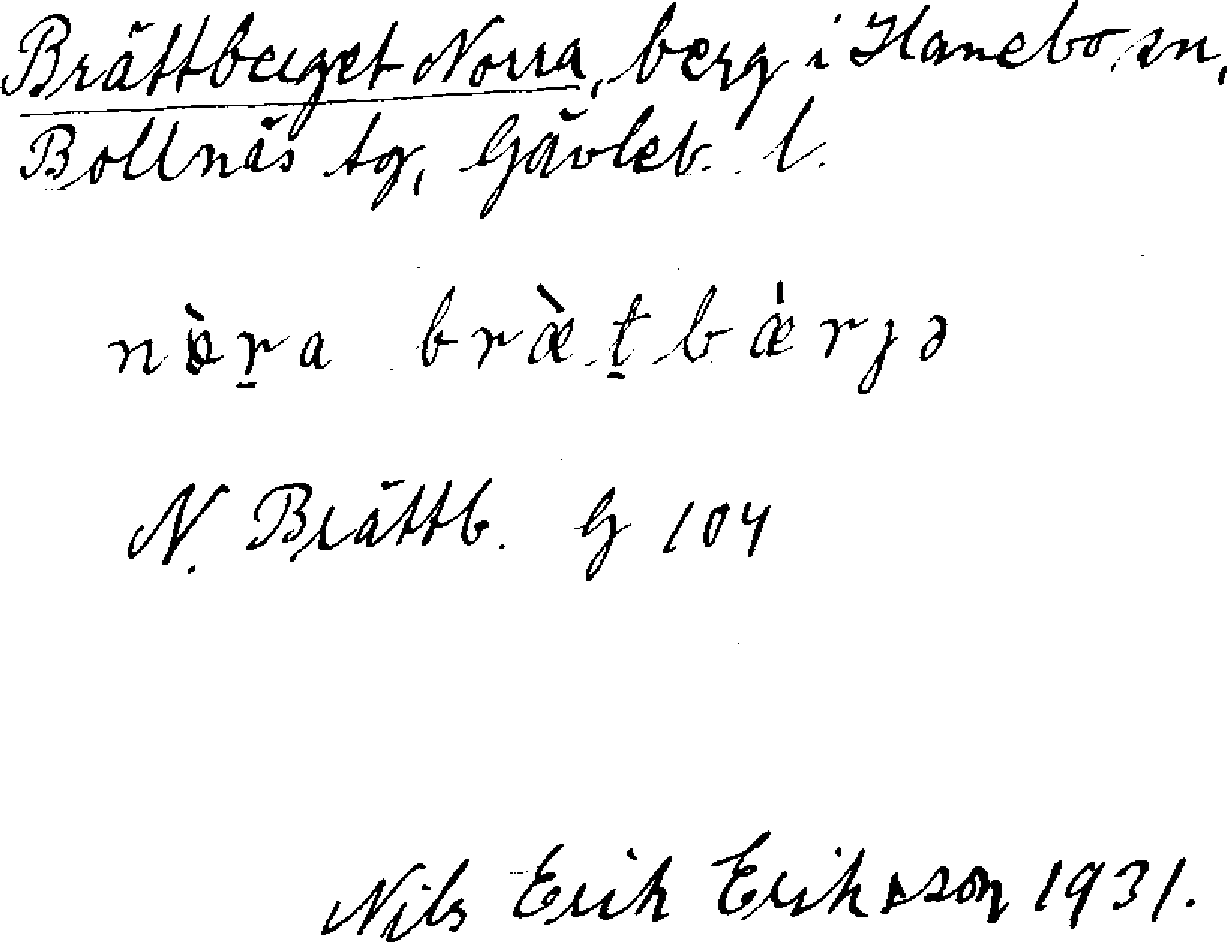 Brättberget Norra, berg i Hanebo sn,
Bollnäs tg, Gävleb. l.
nòr̲a bræ̀t̲bǽrjə
N. Brättb. G 104
Nils Erik Eriksson 1931.